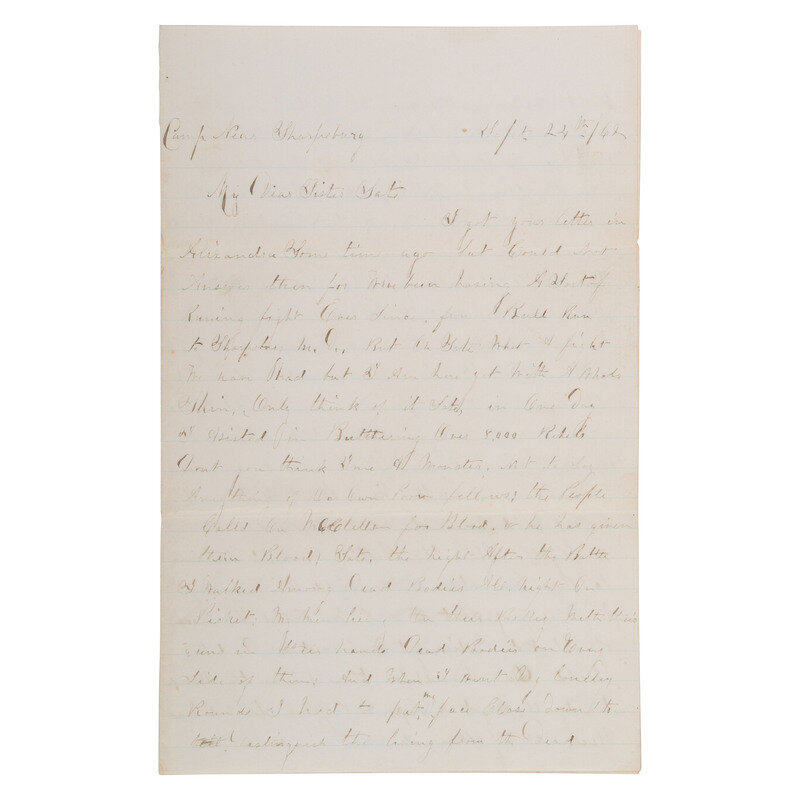 Camp Near Sharpsburg Sept 24th/62
My Dear Sister Sate
I got your letter in
Alexandra Some time ago but Could Not
Answer them for Weve been having A Sort of
Runing fight Ever Since, from Bull Run
to Sharpsburg M.D., But Oh Sate What A fight
We have Had but I Am here yet With A Whole
Skin, Only think of it Sate, in One Day
I Assisted in Butchering Over 8,000 Rebels
Dont you think Ime A Monster, Not to Say
Anything of Our Own Poor fellows; the People
Calls On McClellan for Blood, & he has given
them Blood; Sate, the Night After the Battle
I Walked Among Dead Bodies All Night On
Picket; the Men lie on their Bellies With their
guns in their hands Dead Bodies on Every
Side of them And When I Went My
Rounds I Had to put my face Close down to
distinguish the living from the Dead